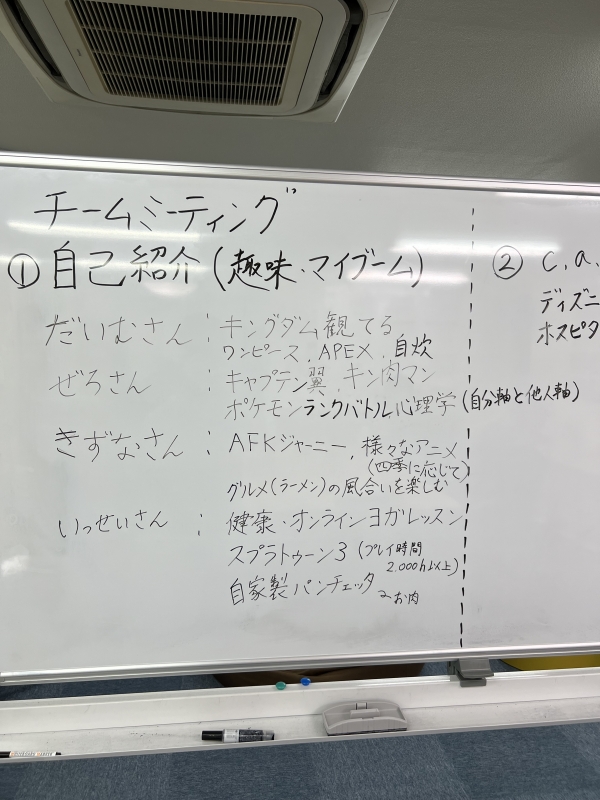 チームミーティング
① 自己紹介 (趣味・マイブーム)
だいむさん : キングダム観てる
ワンピース、APEX、自炊
ぜろさん : キャプテン翼、キン肉マン
ポケモンランクバトル 心理学 (自分軸と他人軸)
きずなさん : AFKジャーニー、様々なアニメ
(四季に応じて)
グルメ(ラーメン)の風合いを楽しむ
いっせいさん : 健康・オンラインヨガレッスン
スプラトゥーン3 (プレイ時間
2,000h以上)
自家製パンチェッタ
お肉
② C.a.
ディズニ
ホスピタ